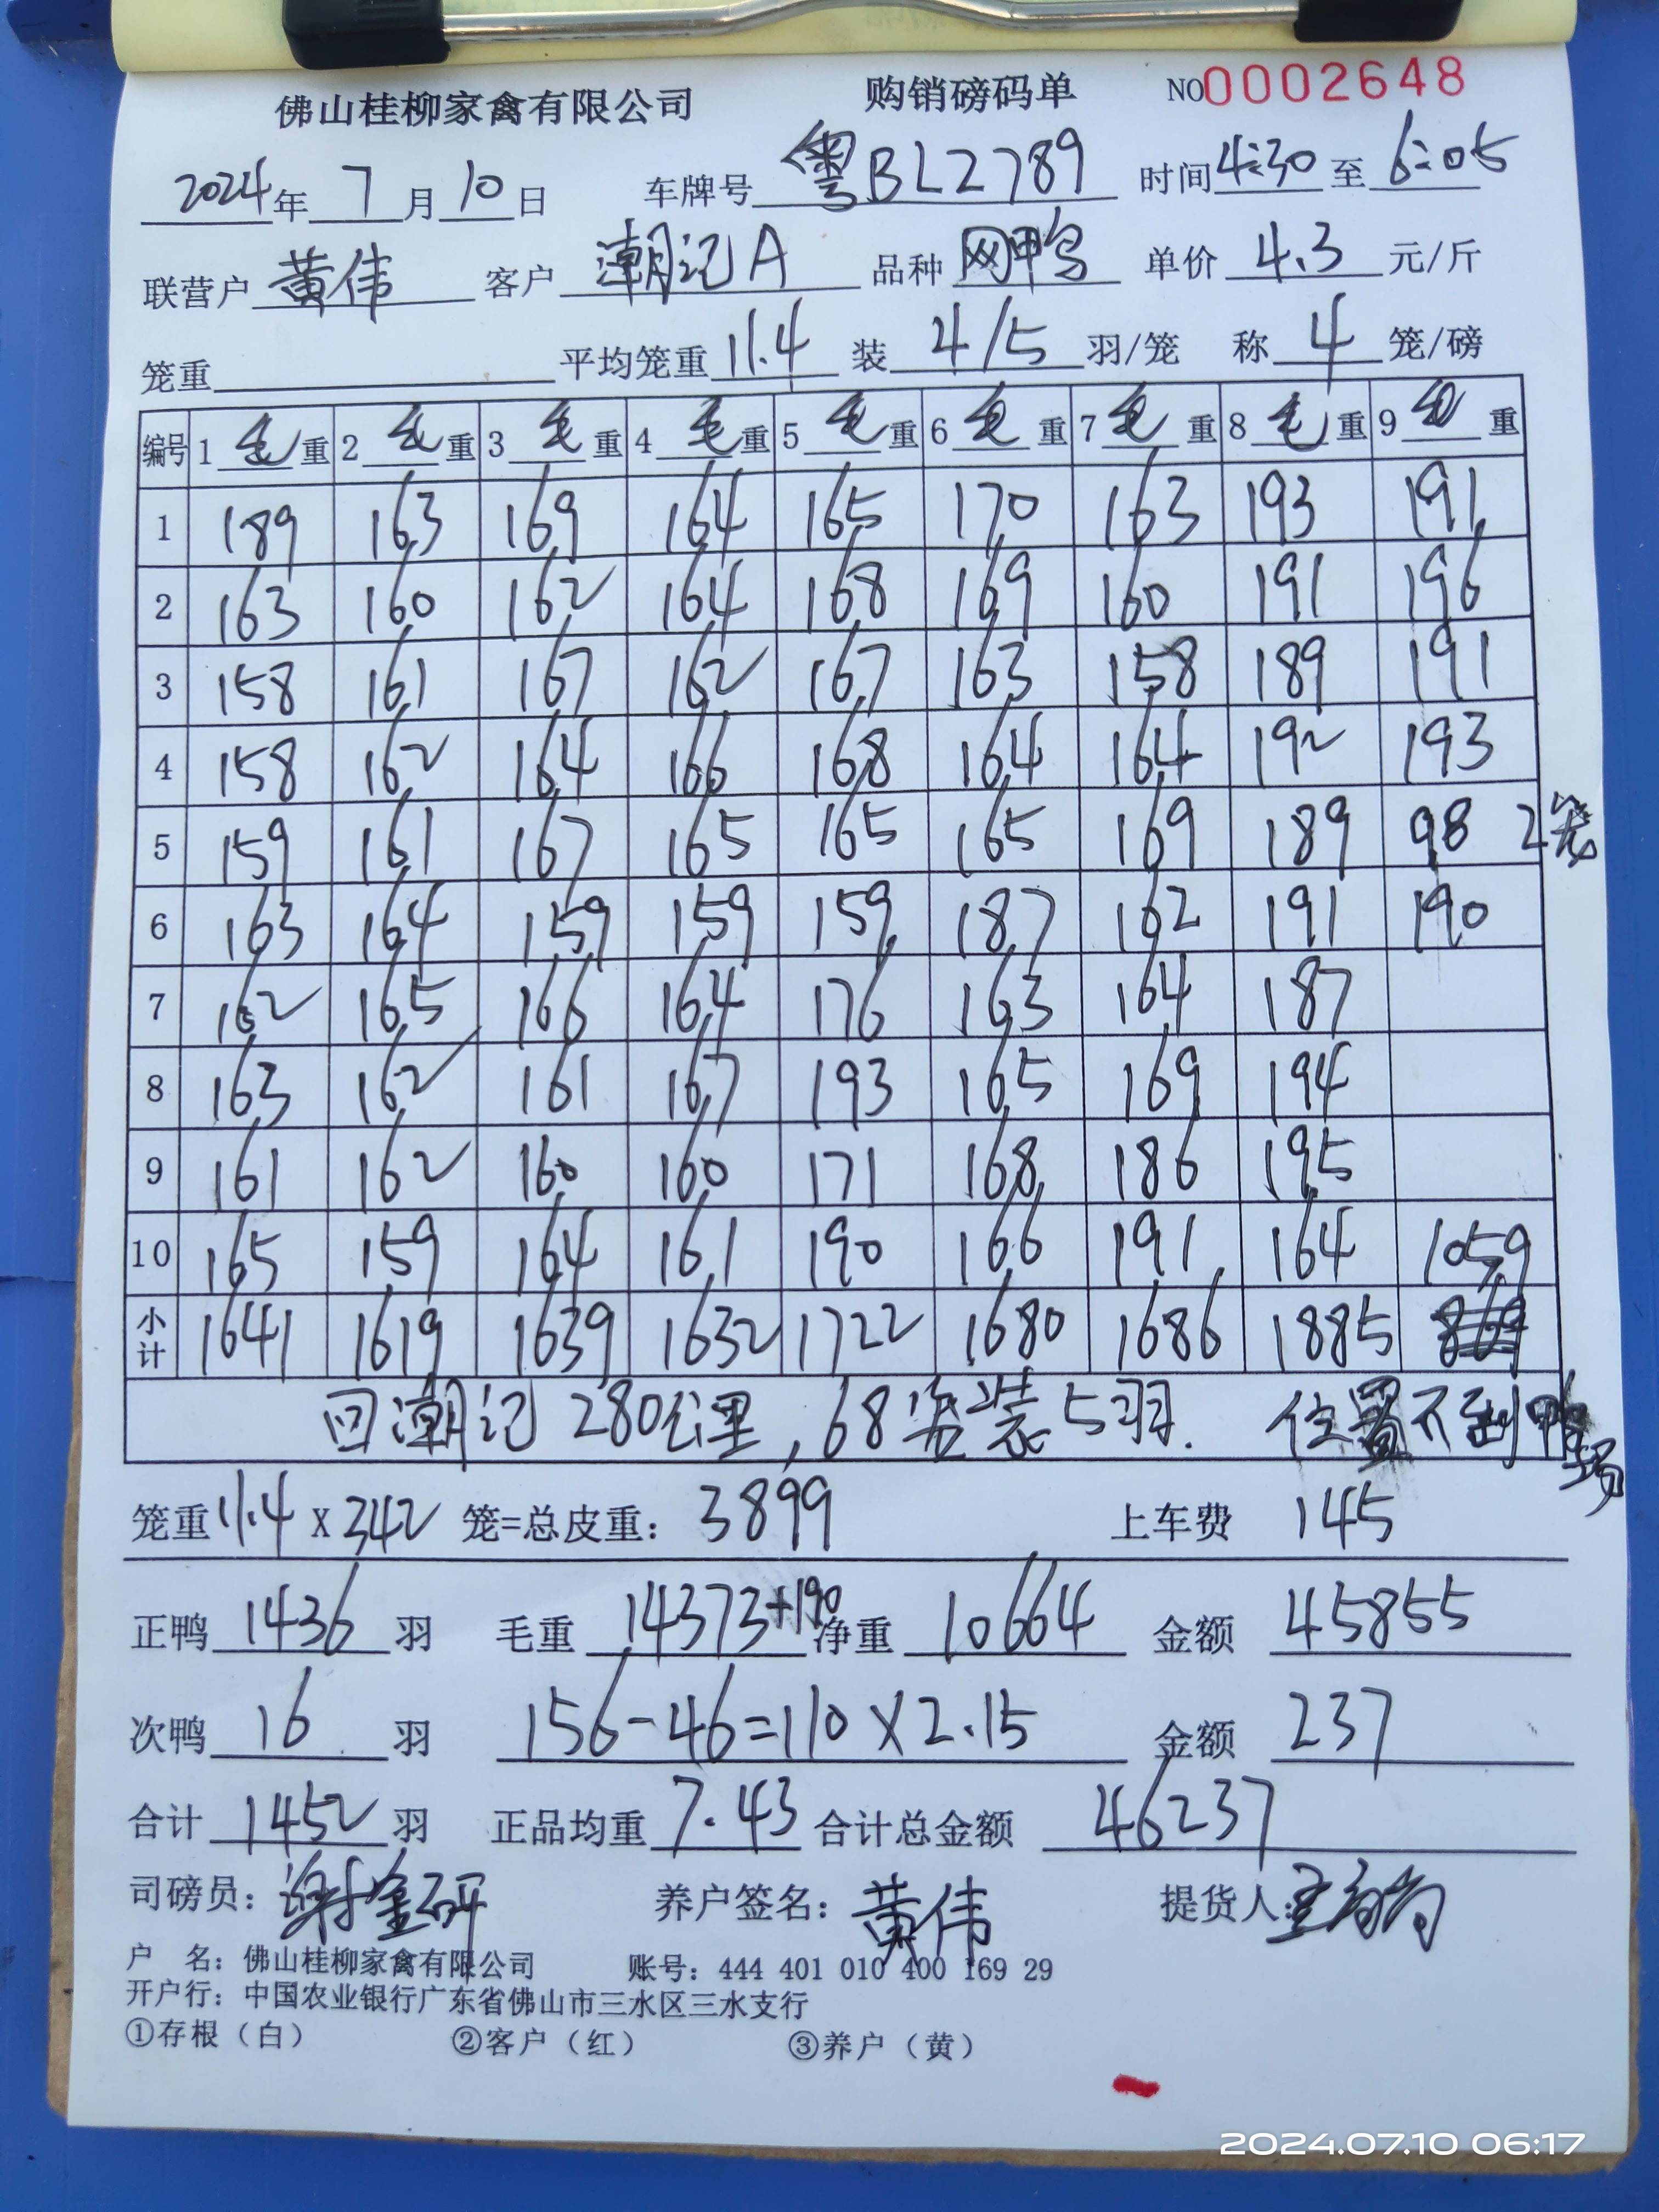 佛山桂柳家禽有限公司 购销磅码单 NO0002648
2024年 7 月 10 日 车牌号 粤BL2789 时间 4:30 至 6:05
联营户 黄伟 客户 潮记A 品种 网鸭 单价 4.3 元/斤
笼重 平均笼重 11.4 装 4/5 羽/笼 称 4 笼/磅
编号 1 毛 重 2 毛 重 3 毛 重 4 毛 重 5 毛 重 6 毛 重 7 毛 重 8 毛 重 9 毛 重
1 189 163 169 164 165 170 163 193 191
2 163 160 162 164 168 169 160 191 196
3 158 161 167 162 167 163 158 189 191
4 158 162 164 166 168 164 164 192 193
5 159 161 167 165 165 165 169 189 98 2笼
6 163 164 159 159 159 187 162 191 190
7 162 165 166 164 176 163 164 187
8 163 162 161 167 193 165 169 194
9 161 162 160 160 171 168 186 195
10 165 159 164 161 190 166 191 164 1059
小计 1641 1619 1639 1632 1722 1680 1686 1885
回潮记 280公里,68笼装5羽. 位置不到鸭场
笼重 11.4 X 342 笼=总皮重: 3899 上车费 145
正鸭 1436 羽 毛重 14373+190 净重 10664 金额 45855
次鸭 16 羽 156-46=110X2.15 金额 237
合计 1452 羽 正品均重 7.43 合计总金额 46237
司磅员: 谢金研 养户签名: 黄伟 提货人:
户 名: 佛山桂柳家禽有限公司 账号: 444 401 010 400 169 29
开户行: 中国农业银行广东省佛山市三水区三水支行
①存根（白） ②客户（红） ③养户（黄）
2024.07.10 06:17